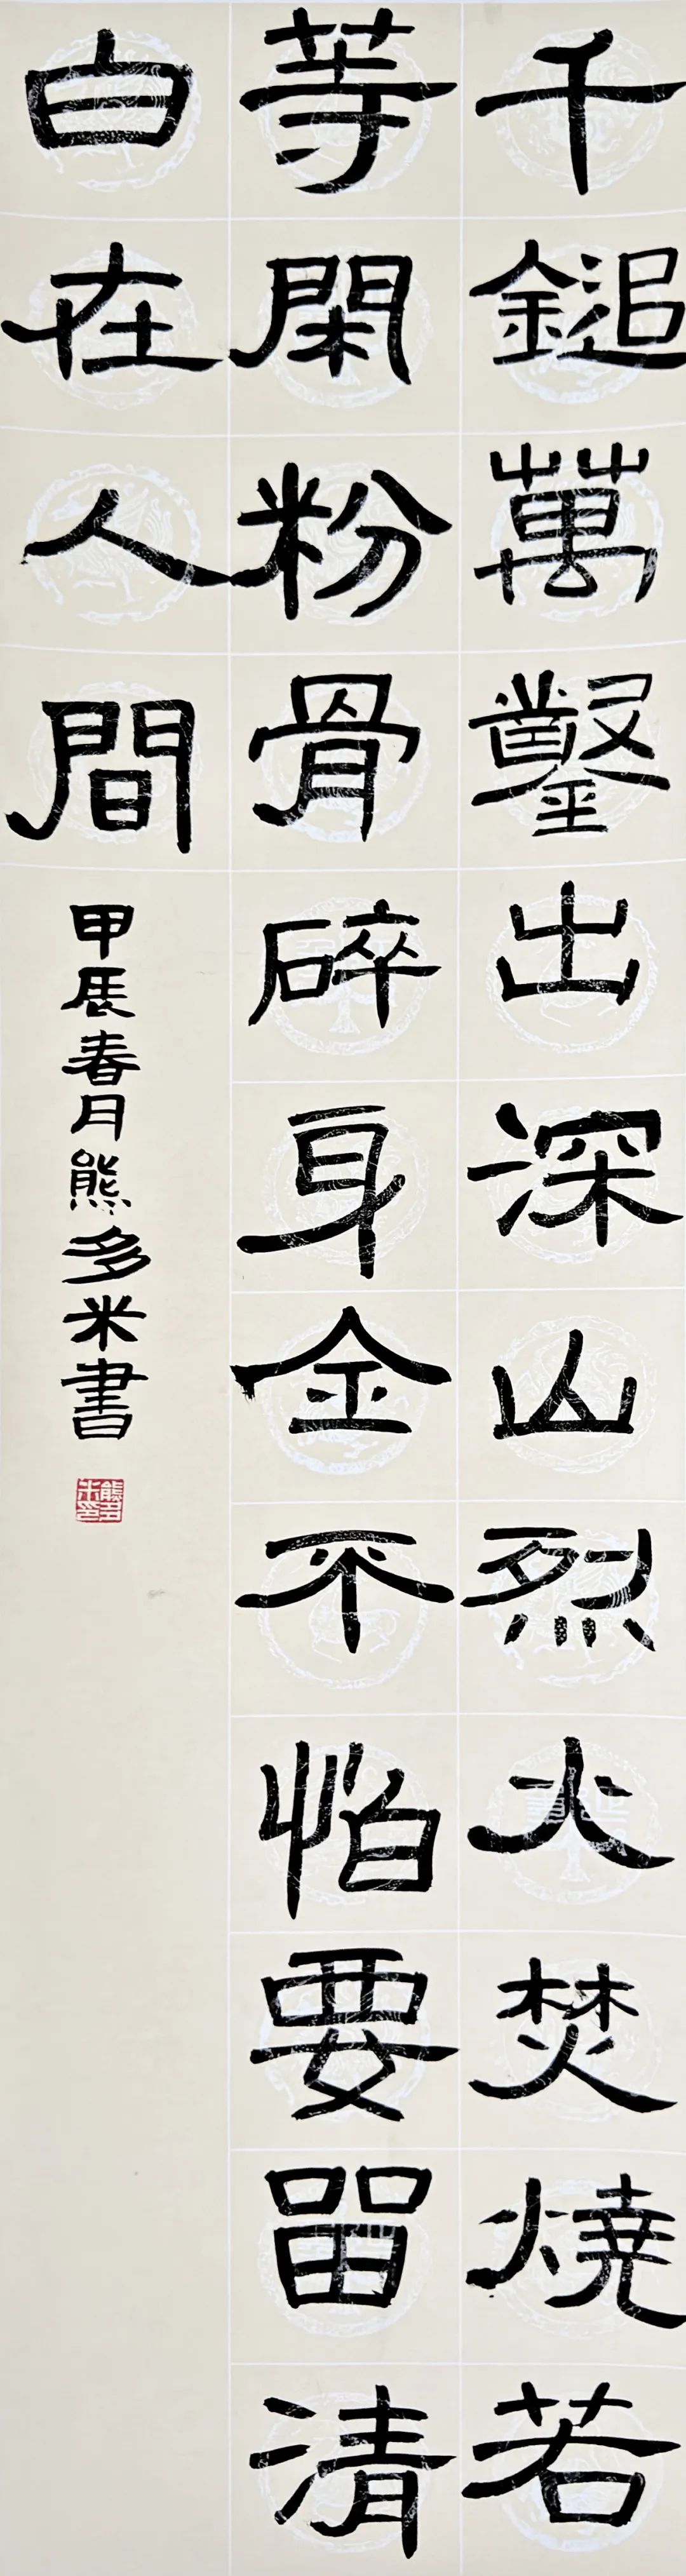 千鎚萬鑿出深山烈火焚燒若
等閑粉骨碎身全不怕要留清
白在人間
甲辰春月熊多米書
熊多米印